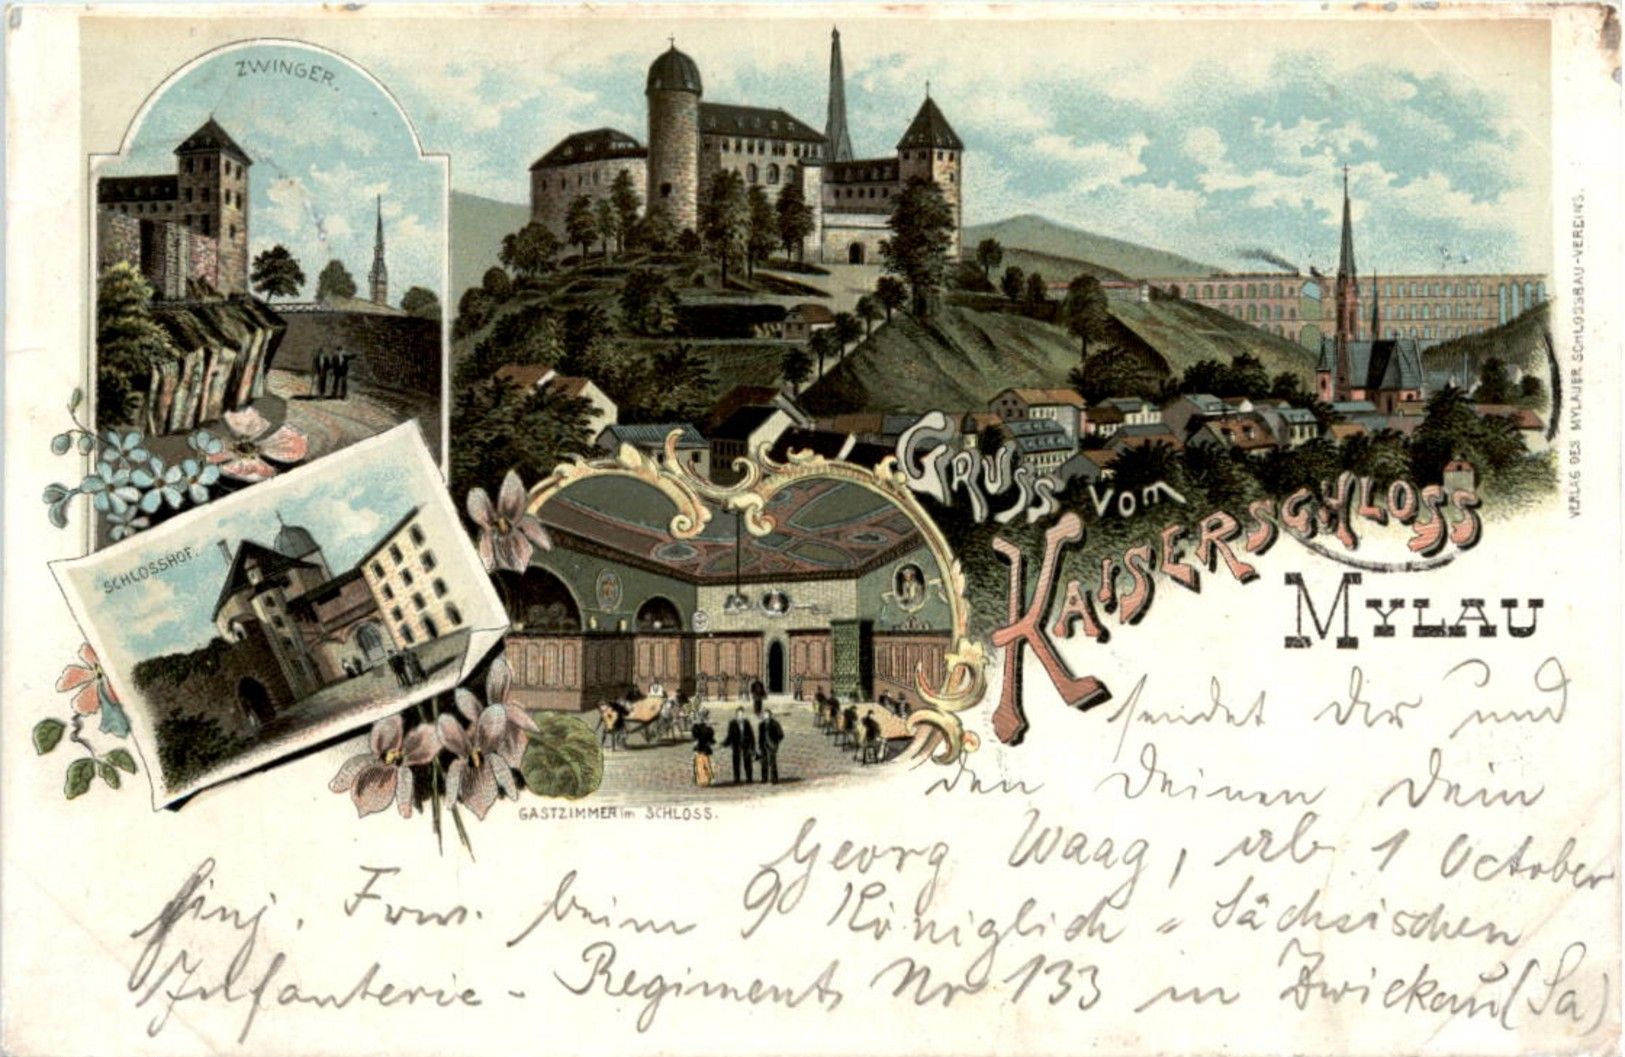 ZWINGER.
SCHLOSSHOF.
GASTZIMMER im SCHLOSS.
GRUSS vom
KAISERSCHLOSS
MYLAU
VERLAG DES MYLAUER SCHLOSSBAU-VEREINS.
sendet Dir und
den Deinen Dein
Georg Waag, ab 1 October
Einj. Frw. beim 9 Königlich - Sächsischen
Infanterie - Regiment Nr 133 in Zwickau (Sa)